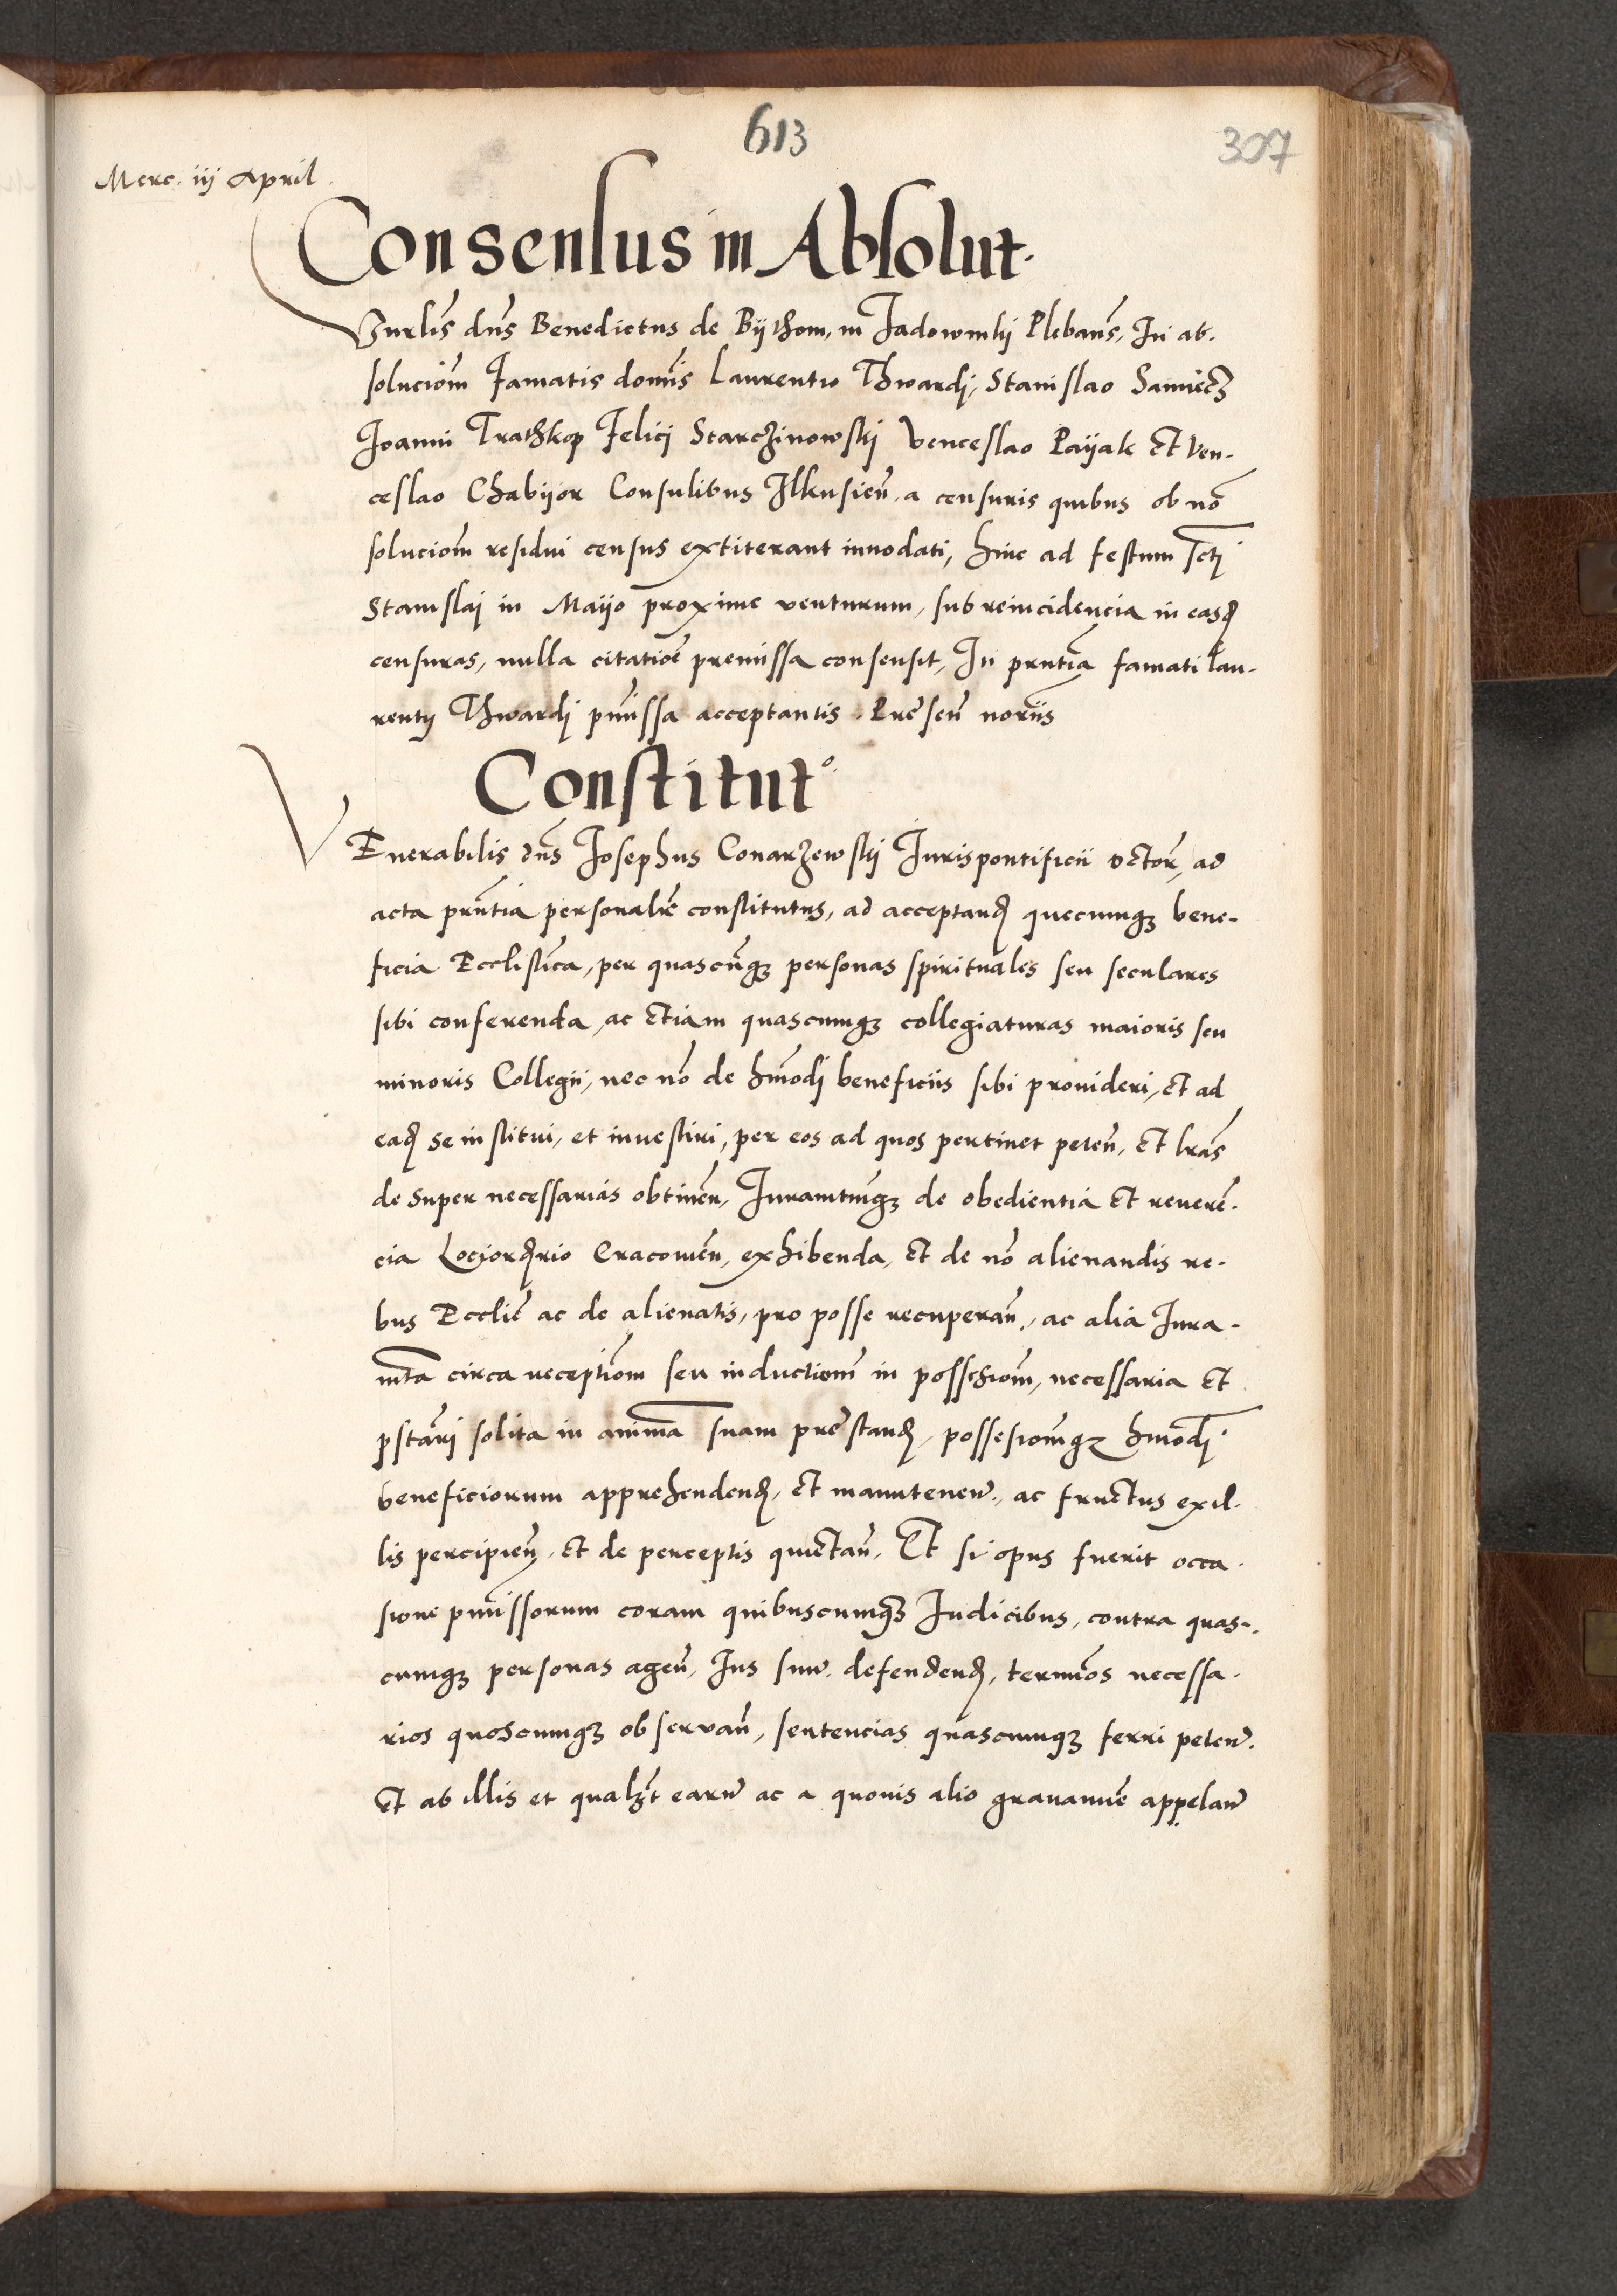 613
307
Merc. iij April.
Consensus in Absolut.
Vnrlis dns Benedictus de Bijthom, in Jadownikj Plebans, In ab-
soluciom Famatis domis Laurentio Thwardj, Stanislao
Joanni Trathkop Felici Starczinowskj Venceslao Paijak Et Ven-
ceslao Chabijor Consulibus Ilkusien, a censuris quibus ob no
soluciom residui census extiterant innodati, hinc ad festum scti
Stanislaj in Maijo proxime venturum, sub reincidencia in easd
censuras, nulla citatioe premissa consensit, In prntia famati Lau-
rentij Thwardj pmissa acceptantis. Presen noriis
Constituto.
VEnerabilis dns Josephus Conarzewskj Jurispontificii doctor, ad
acta prntia personalre constitutus, ad acceptand quecumqz bene-
ficia Ecclistica, per quascunqz personas spirituales seu seculares
sibi conferenda, ac Etiam quascumqz collegiaturas maioris seu
minoris Collegii, nec no de hmodj beneficiis sibi prouideri, Et ad
ead se institui, et inuestiri, per eos ad quos pertinet peten, Et lras
de super necessarias obtinen, Juramtumqz de obedientia Et reueren-
cia Lociordrio Cracouien, exhibenda, Et de no alienandis re-
bus Ecclie ac de alienatis, pro posse recuperan, ac alia Jura-
mta circa receptiom seu inductionem in possessiom, necessaria Et
pstari solita in anima suam prestand, possessiomqz hmodj
beneficiorum apprehendend, Et manutenen., ac fructus ex il-
lis percipien, Et de perceptis quictan, Et si opus fuerit occa-
sione pmissorum coram quibuscumqz Judicibus, contra quas-
cumqz personas agen, Jus suu defendend, termios necessa-
rios quoscumqz obseruan, sentencias quascumqz ferri peten.
Et ab illis et qualzt earu ac a quouis alio grauamie appelan